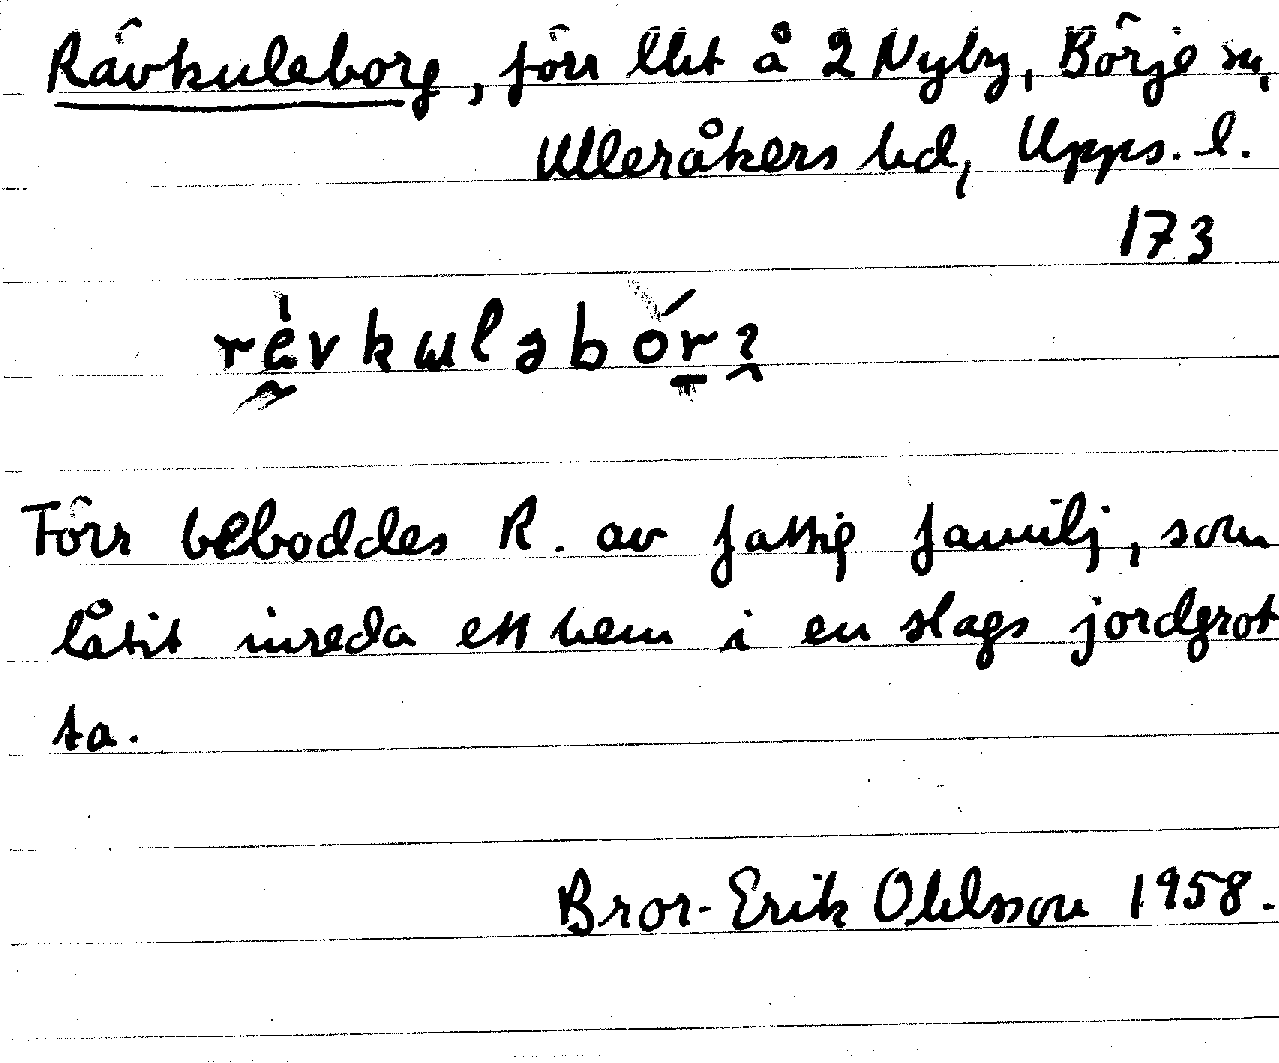 Rävkuleborg, förr lht å 2 Nyby, Börje sn,
Ulleråkers hd, Upps. l.
173
Förr beboddes R. av fattig familj, som
låtit inreda ett hem i en slags jordgrot
ta.
Bror-Erik Ohlsson 1958.